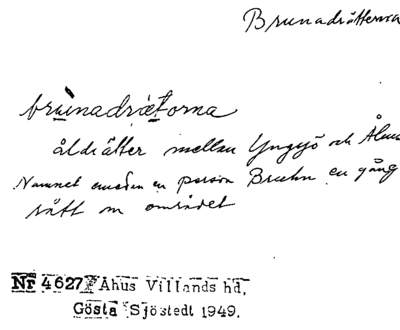 Brunadrätterna
bruinadrætorna
åldrätter mellan Yngsjö och Åhus
Namnet emedan en person Bruhn en gång
rått om området
Nr 4627 Åhus Villands hd.
Gösta Sjöstedt 1949.